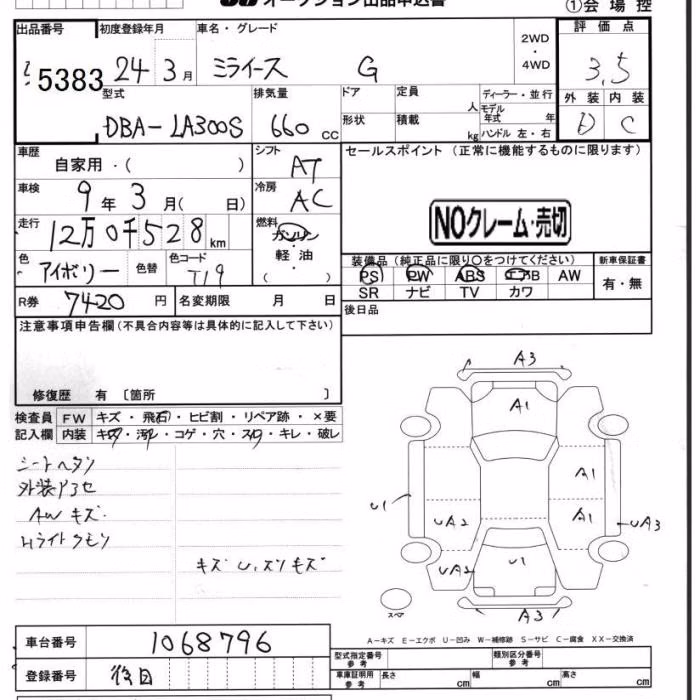 オークション出品申込書
①会場控
出品番号 初度登録年月 車名・グレード 2WD・4WD 評価点
5383 24年3月 ミライース G 3.5
型式 排気量 ドア 定員 人 ディーラー・並行 外装 内装
DBA-LA300S 660cc 形状 積載 kg モデル年式 年 ハンドル 左・右 D C
車歴 自家用・( ) シフト AT セールスポイント (正常に機能するものに限ります)
車検 9年3月( 日) 冷房 AC
NOクレーム・売切
走行 12万0千528km 燃料 ガソリン・軽油・( )
色 アイボリー 色替 色コード T19
装備品 (純正品に限り○をつけてください) 新車保証書
PS PW ABS エアB AW 有・無
SR ナビ TV カワ
R券 7420円 名変期限 月 日 後日品
注意事項申告欄 (不具合内容等は具体的に記入して下さい)
修復歴 有 〔箇所 〕
検査員記入欄 FW キズ・飛石・ヒビ割・リペア跡・×要
内装 キズ・汚レ・コゲ・穴・スレ・キレ・破レ
シートヘタリ
外装アセ
AWキズ
Hライトクモリ
キズ U.スリキズ
A3
A1
A1
U1
UA2
A1
UA3
UA2
U1
A3
スペア
A-キズ E-エクボ U-凹み W-補修跡 S-サビ C-腐食 XX-交換済
車台番号 1068796
登録番号 後日
型式指定番号 参考 類別区分番号 参考
車庫証明用 参考 長さ cm 幅 cm 高さ cm